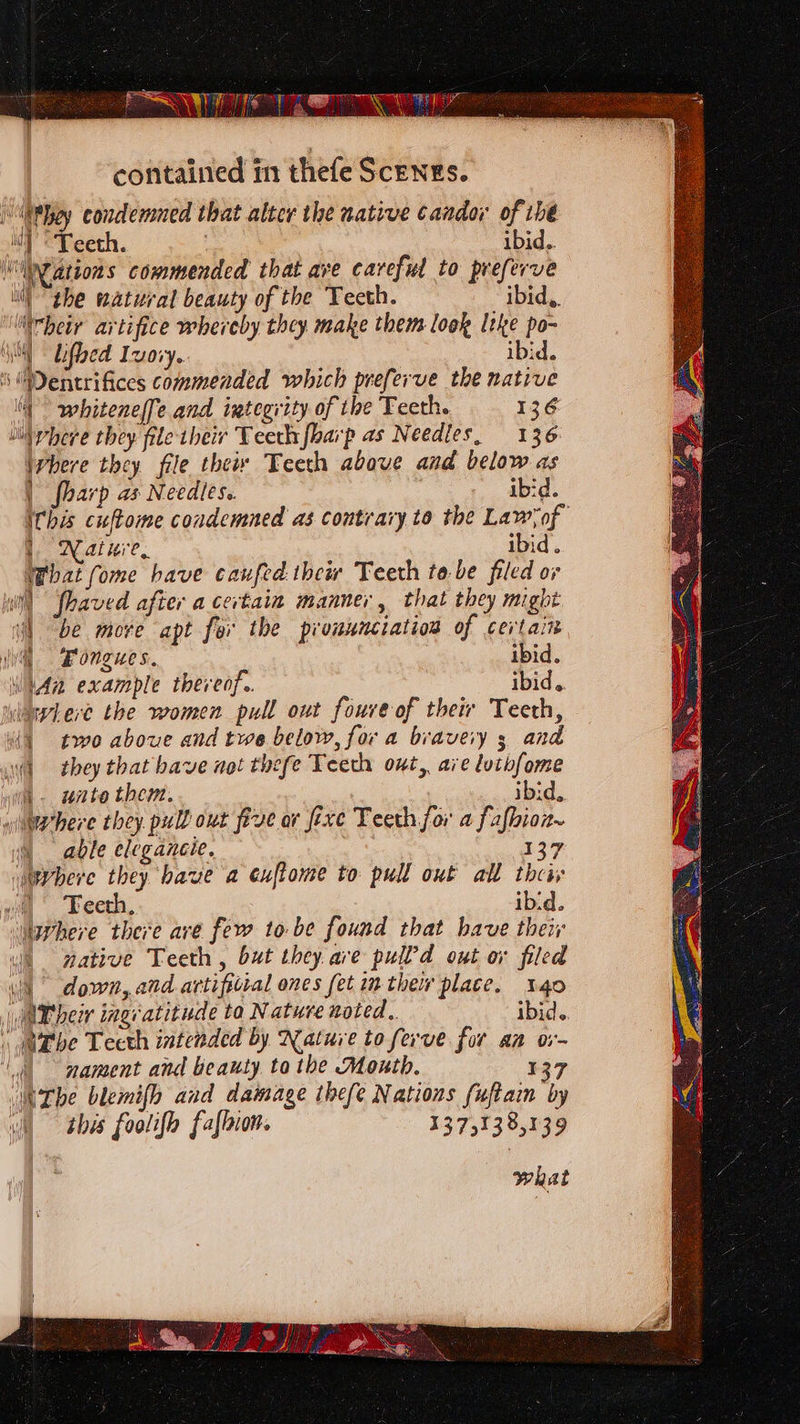 contained in theſe SCENES.
They condemned that alter the native candor of the
Teeth. ibid.
Nations commended that are careful to preſerve
the natural beauty of the Teeth. ibid.
Their artifice whereby they make them look like po-
liſhed Ivory. ibid.
Dentrifices commended which preſerve the native
whiteneſſe and integrity of the Teeth. 136
Where they file their Teeth ſharp as Needles, 136
Where they file their Teeth above and below as
ſharp as Needles. ibid.
This cuſtome condemned as contrary to the Law of
Nature. ibid.
What ſome have cauſed their Teeth to be filed or
ſhaved after a certain manner, that they might
be more apt for the pronunciation of certain
Tongues. ibid.
An example thereof. ibid.
Where the women pull out foure of their Teeth,
two above and two below, for a bravery; and
they that have not theſe Teeth out, are lothſome
unto them. ibid.
Where they pull out five or ſixe Teeth for a faſhion-
able elegancie. 137
Where they have a cuſtome to pull out all their
Teeth, ibid.
Where there are few to be found that have their
native Teeth, but they are pull'd out or filed
down, and artificial ones ſet in their place. 140
Their ingratitude to Nature noted. ibid.
The Teeth intended by Nature to ſerve for an or-
nament and beauty to the Mouth. 137
The blemiſh and damage theſe Nations ſuſtain by
this fooliſh faſhion. 137,138,139
what